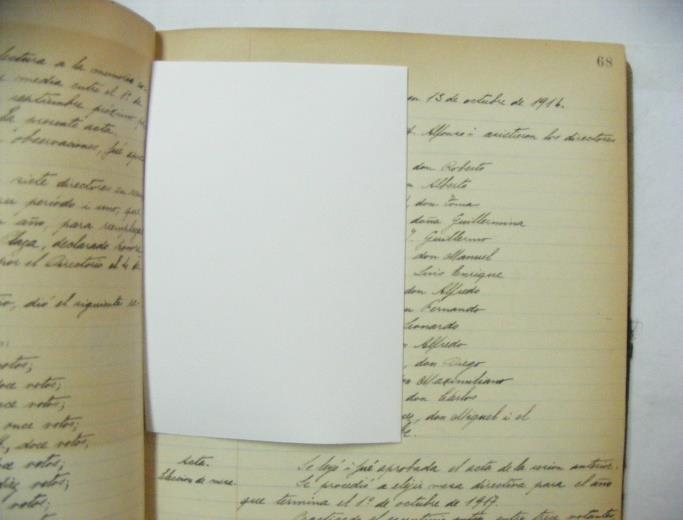 lectura a la memoria
media entre el 1º. de
septiembre próximo,
la presente acta.
observaciones, fué
siete directores en
su período i uno, que
año, para
declarado
por el Directorio el 4 de
dió el siguiente
votos;
doce votos;
once votos;
once votos;
doce votos,
votos;
diez votos;
votos;
68
en 13 de octubre de 1916.
Alfonso i asistieron los directores
don Roberto
Alberto
don Toma
doña Guillermina
Guillermo
don Manuel
Luis Enrique
don Alfredo
Fernando
Leonardo
Alfredo
don Diego
Maximiliano
don Cárlos
don Miguel i el
Acta.
Eleccion de mesa.
Se leyó i fué aprobada el acta de la sesion anterior.
Se procedió a elejir mesa directiva para el año
que termina el 1º de octubre de 1917.
Practicado el escrutinio entre trece votantes